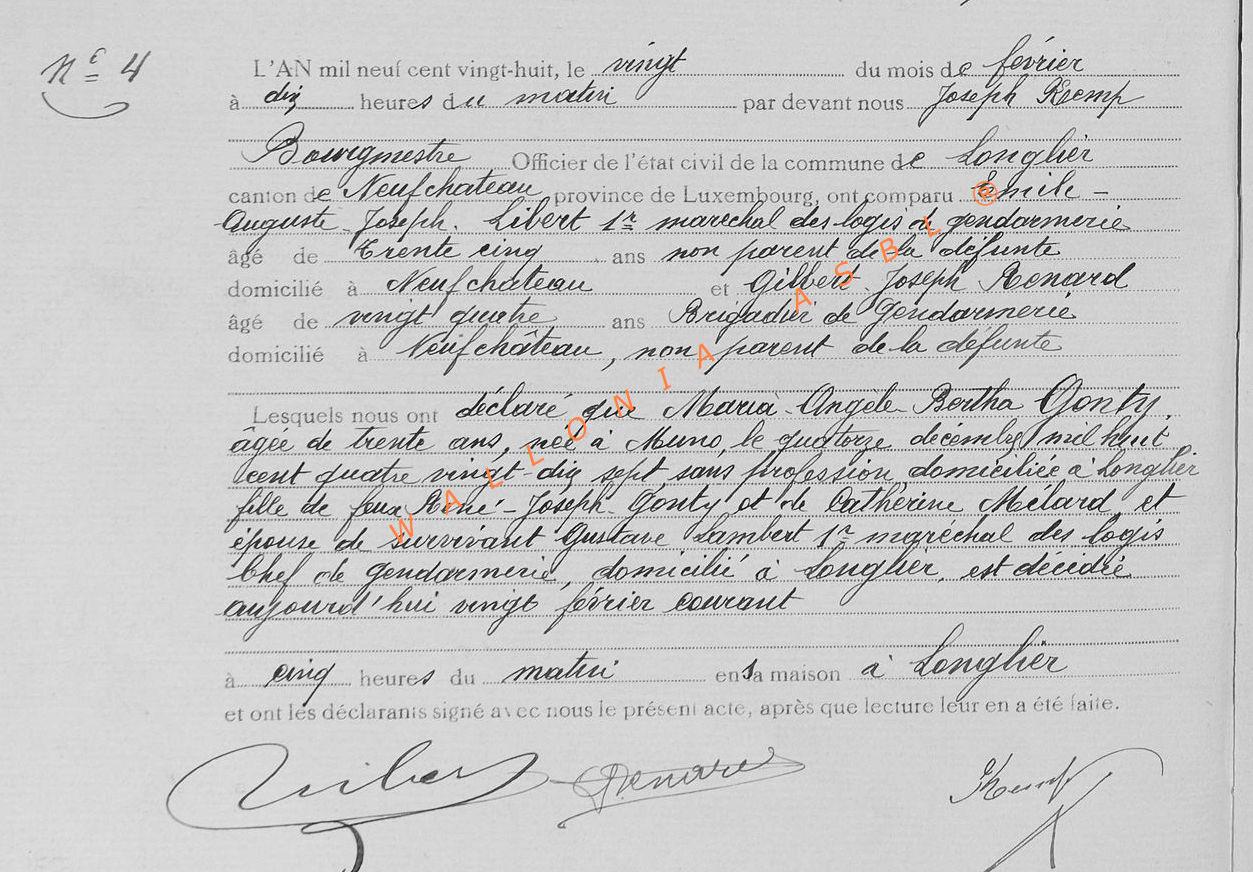 Nº 4
L'AN mil neuf cent vingt-huit, le vingt du mois de février
à dix heures du matin par devant nous Joseph Kemp
Bourgmestre Officier de l'état civil de la commune de Longlier
canton de Neufchateau province de Luxembourg, ont comparu Emile -
Auguste - Joseph. Libert 1r maréchal des logis de gendarmerie
âgé de trente cinq ans non parent de la défunte
domicilié à Neufchâteau et Gilbert Joseph Renard
âgé de vingt quatre ans Brigadier de Gendarmerie
domicilié à Neufchâteau, non parent de la défunte
Lesquels nous ont déclaré que Maria - Angèle - Bertha Gonty,
âgée de trente ans, née à Muno, le quatorze décembre mil huit
cent quatre vingt-dix sept, sans profession, domiciliée à Longlier
fille de feux René - Joseph Gonty et de Catherine Mélard, et
épouse de survivant Gustave Lambert 1r maréchal des logis
Chef de gendarmerie, domicilié à Longlier, est décédée
aujourd'hui vingt février courant
à cinq heures du matin en sa maison à Longlier
et ont les déclarants signé avec nous le présent acte, après que lecture leur en a été faite.
Libert Renard Kemp
WALLONIA ASBL ®